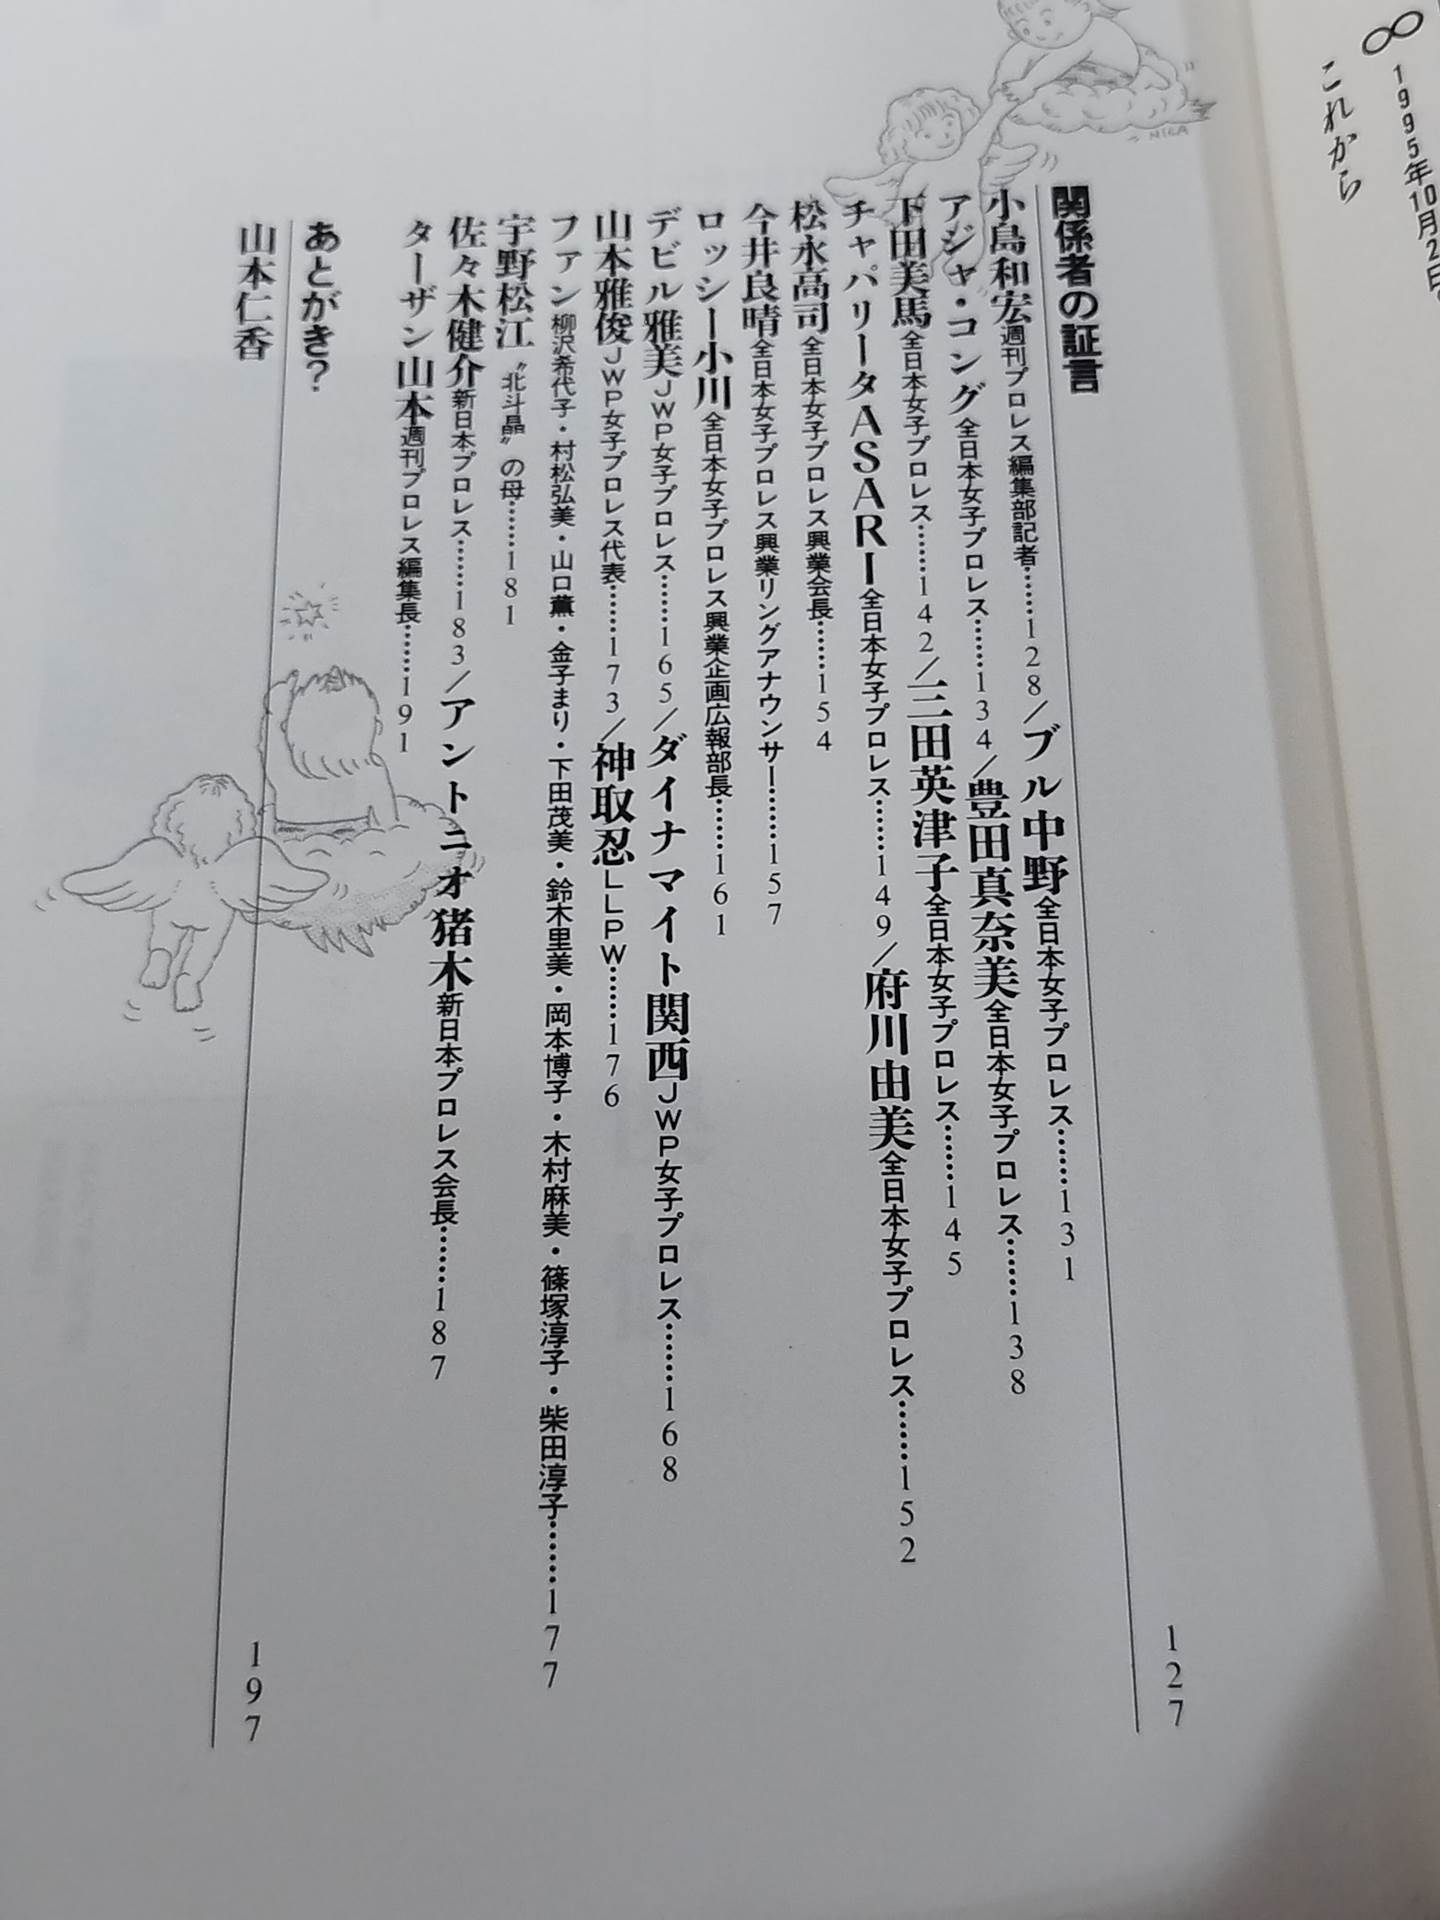 ∞ 1995年10月2日
これから
関係者の証言 127
小島和宏 週刊プロレス編集部記者……128／ブル中野 全日本女子プロレス……131
アジャ・コング 全日本女子プロレス……134／豊田真奈美 全日本女子プロレス……138
下田美馬 全日本女子プロレス……142／三田英津子 全日本女子プロレス……145
チャパリータASARI 全日本女子プロレス……149／府川由美 全日本女子プロレス……152
松永高司 全日本女子プロレス興業会長……154
今井良晴 全日本女子プロレス興業リングアナウンサー……157
ロッシー小川 全日本女子プロレス興業企画広報部長……161
デビル雅美 JWP女子プロレス……165／ダイナマイト関西 JWP女子プロレス……168
山本雅俊 JWP女子プロレス代表……173／神取忍 LLPW……176
ファン 柳沢希代子・村松弘美・山口薫・金子まり・下田茂美・鈴木里美・岡本博子・木村麻美・篠塚淳子・柴田淳子……177
宇野松江 〝北斗晶〟の母……181
佐々木健介 新日本プロレス……183／アントニオ猪木 新日本プロレス会長……187
ターザン山本 週刊プロレス編集長……191
あとがき？
山本仁香 197